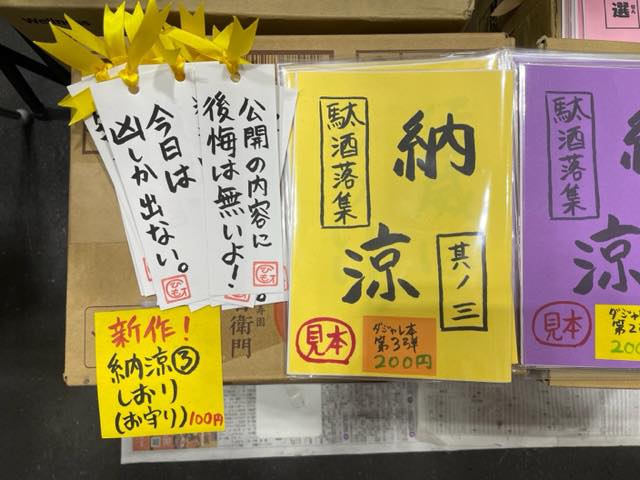 公開の内容に
後悔は無いよ!
今日は
凶しか出ない。
新作!
納涼③
しおり
(お守り)100円
衛門
納涼
駄洒落集
其ノ三
見本
ダジャレ本
第3弾
200円
駄洒落集
納
涼
見本
ダジャレ
第2
200
選